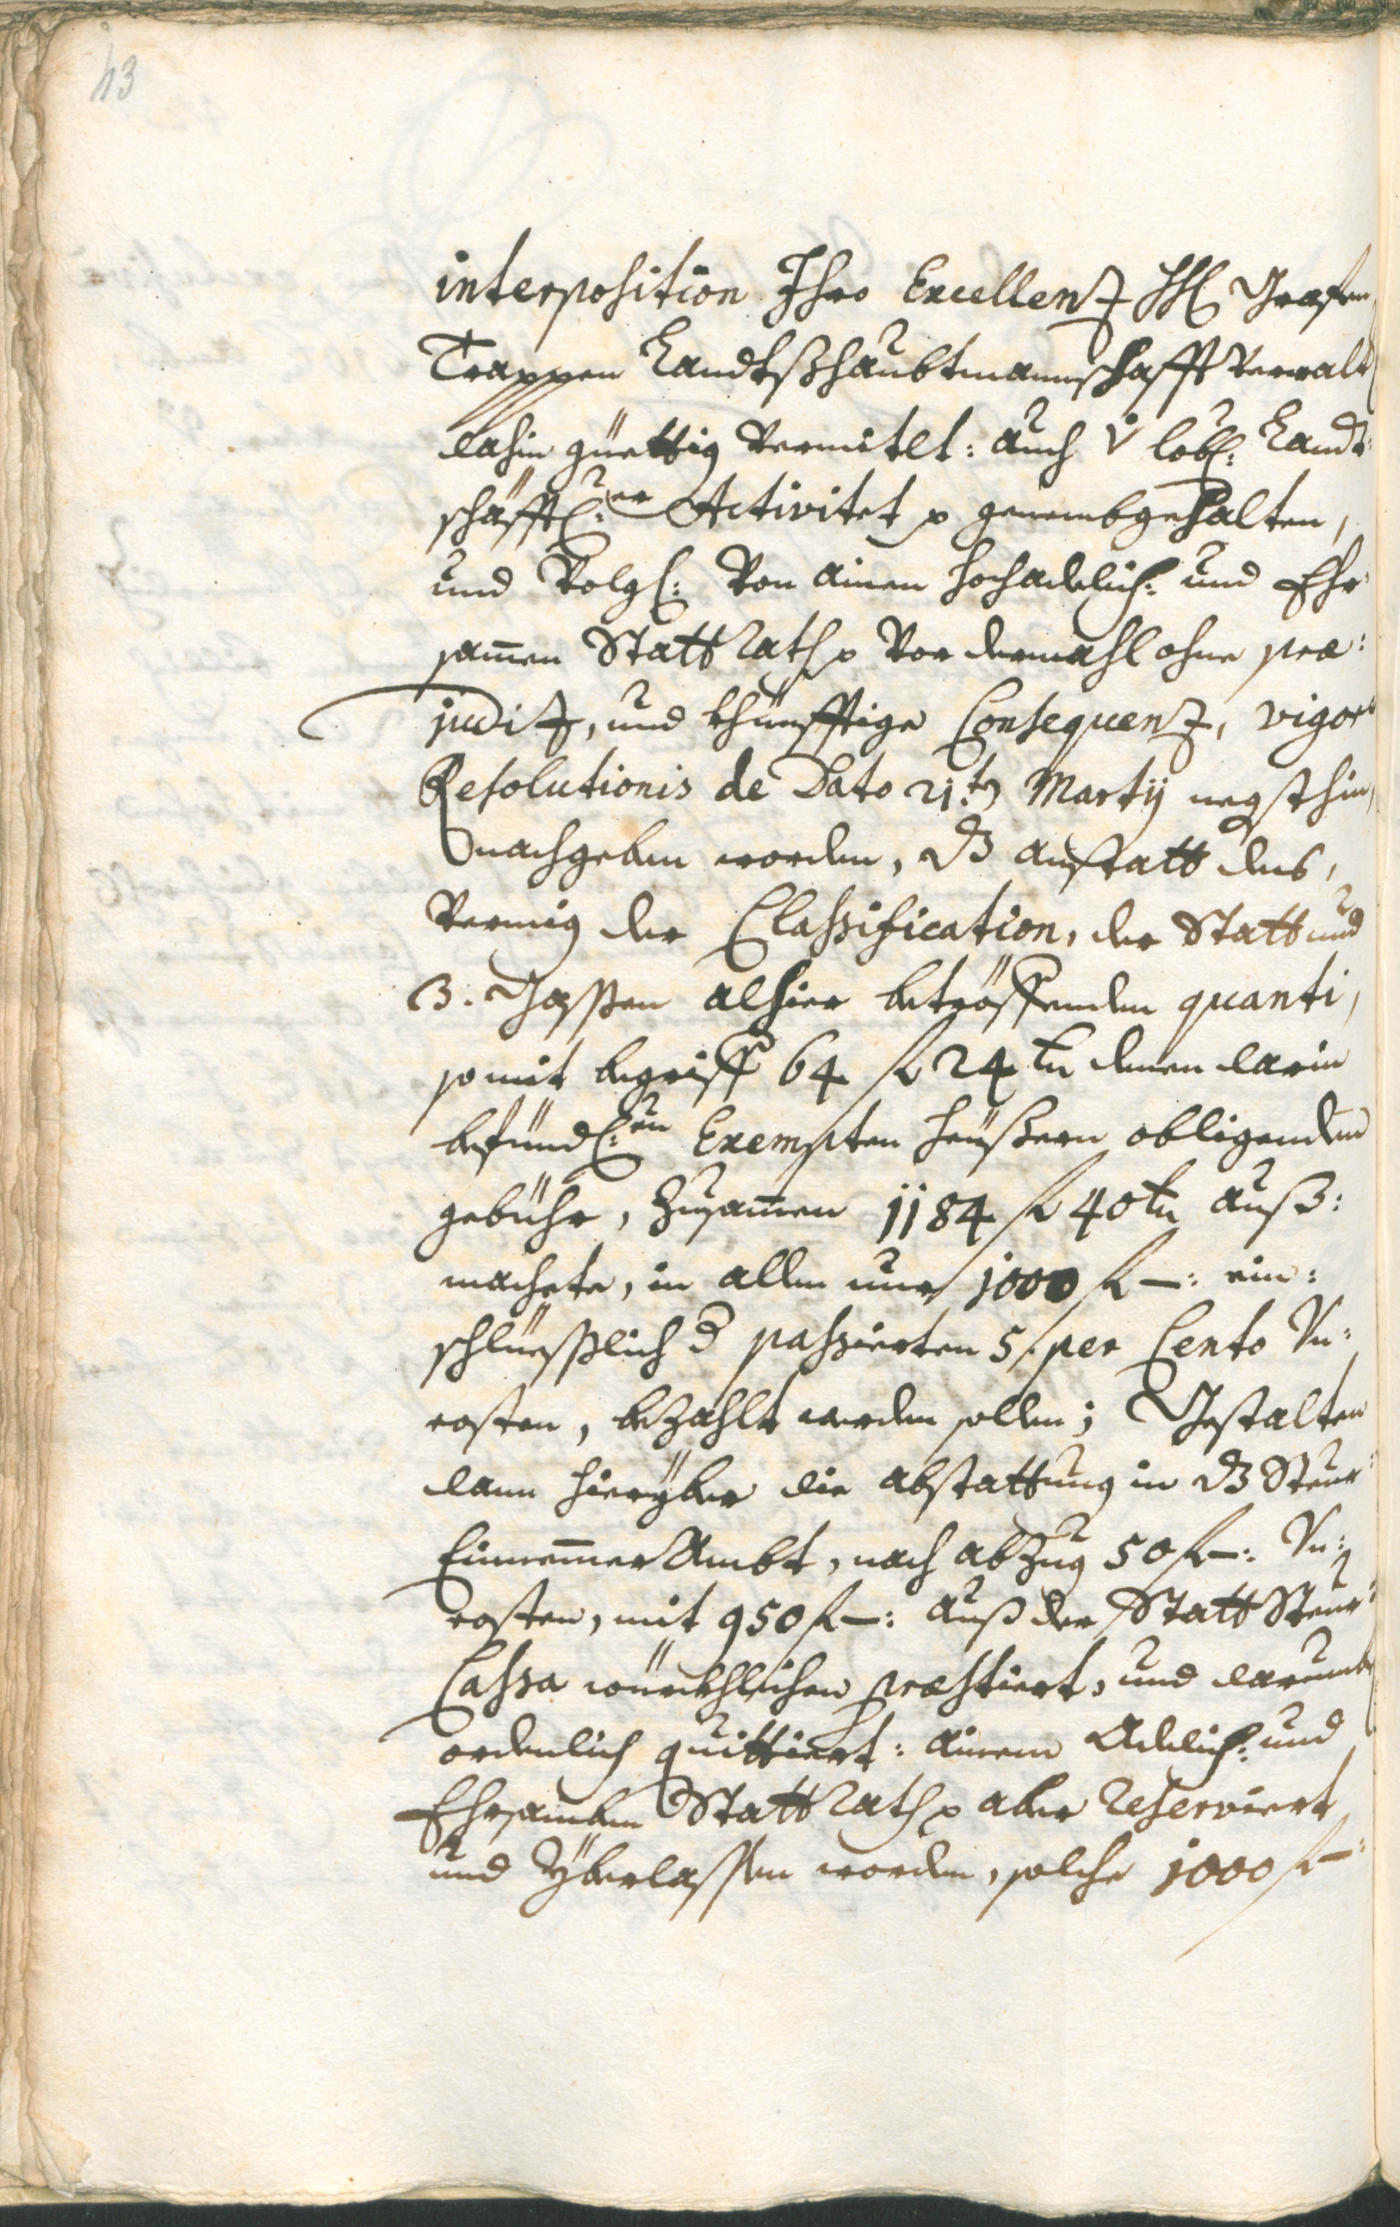 43
interposition Ihro Excellenz HH Grafen
Trappen Landtßhaubtmannschafft Verwalt
dahin güettig Vermitlt: auch v lobl: Landt
schäfftl:er Activitet p genembgehalten,
und Volgl: Von ainen hochadelich: und Ehr
samen Statt Rath p Vor dermahl ohne præ:
judiz, und khünfftige Consequenz, vigore
Resolutionis de Dato 21:tn Martij negsthin,
nachgeben worden, dß anstatt des,
Vermig der Classification, der Statt und
3: Gassen alhier betröffenden quanti,
so mit begriff 64 f 24 kr denen darin
befündl:en Exempten heüßern obligenden
gebühr, zusamen 1184 f 40 kr auß:
machete, in allem nur 1000 f —: ein:
schlüesslich d passierten 5 per Cento Vn:
costen, bezahlt werden sollen; Gestalten
dann hierÿber die abstattung in dß Steur
Einnemer Ambt, nach abzug 50 f —: Vn:
costen, mit 950 f —: auß der Statt Steur
Cassa würckhlichen præstiert, und darumb
ordenlich quittiert: ainem Adelich: und
Ehrsamben Statt Rath p aber Reserviert
und Yberlassen worden, solche 1000 f —: